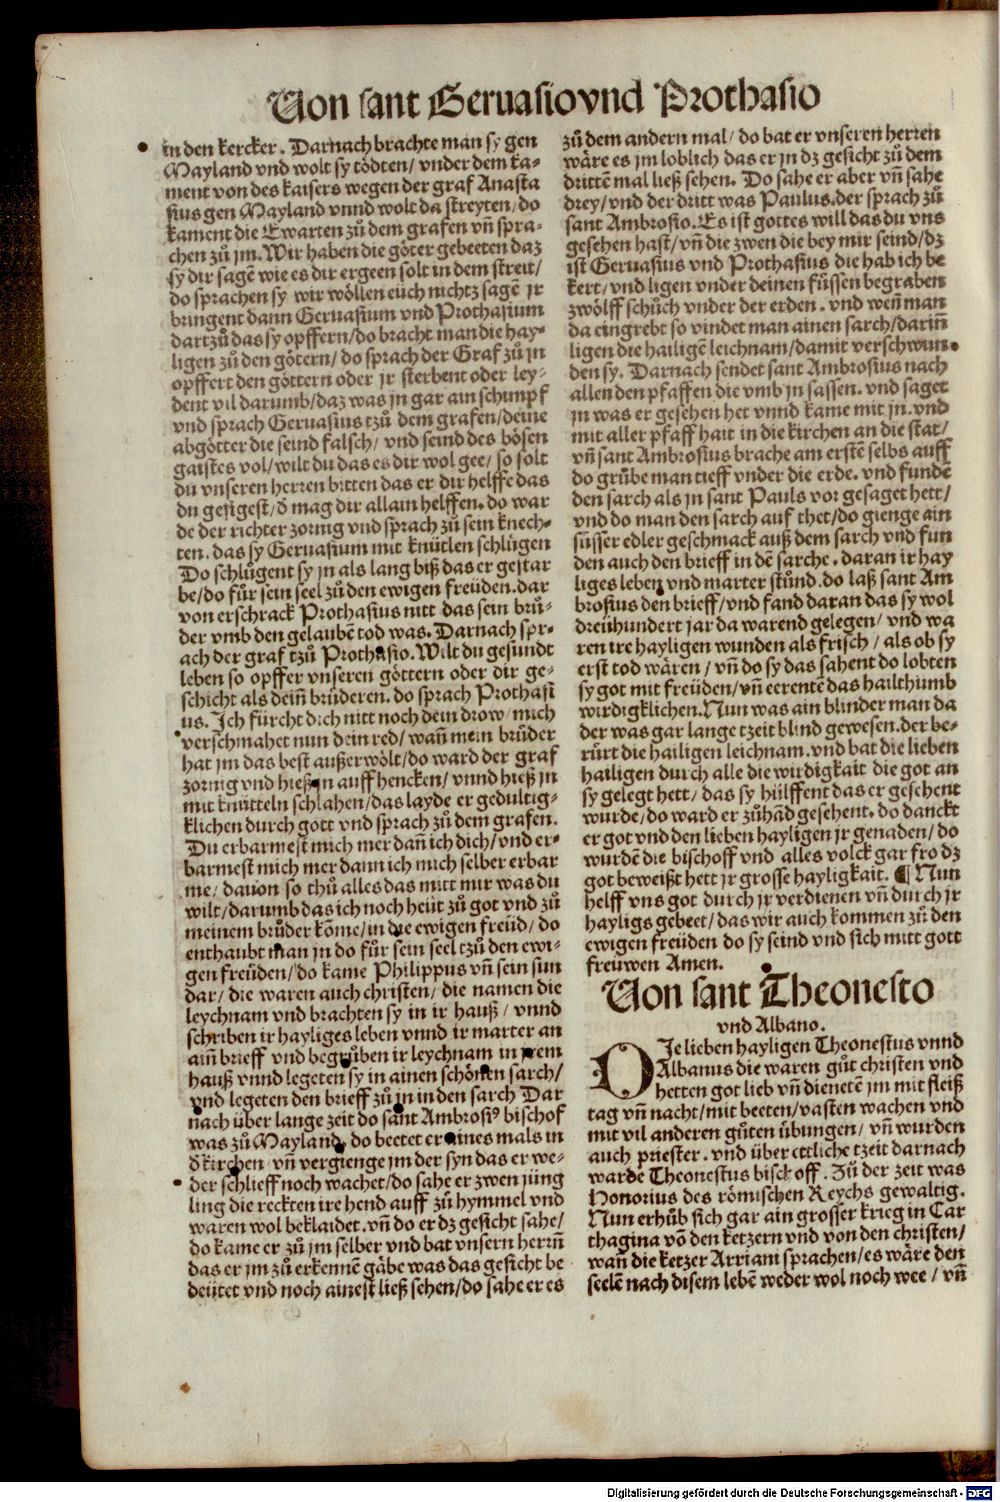 Von sant Geruasio vnd Prothasio
in den kercker. Darnach brachte man sy gen
Mayland vnd wolt sy tödten/ vnder dem ka-
ment von des kaisers wegen der graf Anasta
sius gen Mayland vnnd wolt da streyten/ do
kament die Ewarten zů dem grafen vñ spra-
chen zů jm. Wir haben die göter gebeeten daz
sy dir sagẽ wie es dir ergeen solt in dem streit/
do sprachen sy wir wöllen eüch nichtz sagẽ jr
bringent dann Geruasium vnd Prothasium
dartzů das sy opffern/ do bracht man die hay-
ligen zů den götern/ do sprach der Graf zů jn
opffert den göttern oder jr sterbent oder ley-
dent vil darumb/ daz was jn gar ain schimpf
vnd sprach Geruasius tzů dem grafen/ deine
abgötter die seind falsch/ vnd seind des bösen
gaistes vol/ wilt du das es dir wol gee/ so solt
du vnseren herren bitten das er dir helffe das
du gesigest/ d̕ mag dir allain helffen. do war
de der richter zornig vnd sprach zů sein knech-
ten. das sy Geruasium mit knütlen schlügen
Do schlůgent sy jn als lang biß das er gestar
be/ do fůr sein seel zů den ewigen freüden. dar
von erschrack Prothasius nitt das sein brů-
der vmb den gelaubẽ tod was. Darnach spr-
ach der graf tzů Prothasio. Wilt du gesundt
leben so opffer vnseren göttern oder dir ge-
schicht als deiñ brůderen. do sprach Prothasi
us. Ich fürcht dich nitt noch dein drow/ mich
verschmahet nun dein red/ wañ mein brůder
hat jm das best außerwölt/ do ward der graf
zornig vnd hieß jn auff hencken/ vnnd hieß jn
mit knütteln schlahen/ das layde er gedultig-
klichen durch gott vnd sprach zů dem grafen.
Du erbarmest mich mer dañ ich dich/ vnd er-
barmest mich mer dann ich mich selber erbar
me/ dauon so thů alles das mitt mir was du
wilt/ darumb das ich noch heüt zů got vnd zů
meinem brůder kõme/ in die ewigen freüd/ do
enthaubt man jn do fůr sein seel tzů den ewi-
gen freüden/ do kame Philippus vñ sein sun
dar/ die waren auch christen/ die namen die
leychnam vnd brachten sy in ir hauß/ vnnd
schriben ir hayliges leben vnnd ir marter an
aiñ brieff vnd begrůben ir leychnam in irem
hauß vnnd legeten sy in ainen schönen sarch/
vnd legeten den brieff zů jn in den sarch Dar
nach über lange zeit do sant Ambrosiꝰ bischof
was zů Mayland, do beetet er aines mals in
d̕ kirchen/ vñ vergienge jm der syn das er we-
der schlieff noch wachet/ do sahe er zwen jüng
ling die reckten ire hend auff zů hymmel vnd
waren wol beklaidet. vñ do er dz gesicht sahe/
do kame er zů jm selber vnd bat vnsern herrñ
das er jm zů erkennẽ gäbe was das gesicht be
deütet vnd noch ainest ließ sehen/ do sahe er es
zů dem andern mal/ do bat er vnseren herren
wäre es jm loblich das er jn dz gesicht zů dem
drittẽ mal ließ sehen. Do sahe er aber vñ sahe
drey/ vnd der dritt was Paulus. der sprach zů
sant Ambrosio. Es ist gottes will das du vns
gesehen hast/ vñ die zwen die bey mir seind/ dz
ist Geruasius vnd Prothasius die hab ich be
kert/ vnd ligen vnder deinen füssen begraben
zwölff schůch vnder der erden. vnd weñ man
da eingrebt so vindet man ainen sarch/ dariñ
ligen die hailigẽ leichnam/ damit verschwun-
den sy. Darnach sendet sant Ambrosius nach
allen den pfaffen die vmb jn sassen. vnd saget
jn was er gesehen het vnnd kame mit jn. vnd
mit aller pfaff hait in die kirchen an die stat/
vñ sant Ambrosius brache am erstẽ selbs auff
do grübe man tieff vnder die erde. vnd fundẽ
den sarch als jn sant Pauls vor gesaget hett/
vnd do man den sarch auf thet/ do gienge ain
süsser edler geschmack auß dem sarch vnd fun
den auch den brieff in dẽ sarche. daran ir hay
liges leben vnd marter stůnd. do laß sant Am
brosius den brieff/ vnd fand daran das sy wol
dreühundert jar da warend gelegen/ vnd wa
ren ire hayligen wunden als frisch/ als ob sy
erst tod wären/ vñ do sy das sahent do lobten
sy got mit freüden/ vñ eerentẽ das hailthumb
wirdigklichen. Nun was ain blinder man da
der was gar lange tzeit blind gewesen. der be-
rürt die hailigen leichnam. vnd bat die lieben
hailigen durch alle die wirdigkait die got an
sy gelegt hett/ das sy hülffent das er gesehent
wurde/ do ward er zůhãd gesehent. do danckt
er got vnd den lieben hayligen jr genaden/ do
wurdẽ die bischoff vnd alles volck gar fro dz
got beweißt hett jr grosse hayligkait. ¶ Nun
helff vns got durch jr verdienen vñ durch jr
hayligs gebeet/ das wir auch kommen zů den
ewigen freüden do sy seind vnd sich mitt gott
freuwen Amen.
Von sant Theonesto
vnd Albano.
DIe lieben hayligen Theonestus vnnd
Albanus die waren gůt christen vnd
hetten got lieb vñ dienetẽ jm mit fleiß
tag vñ nacht/ mit beeten/ vasten wachen vnd
mit vil anderen gůten übungen/ vñ wurden
auch priester. vnd über ettliche tzeit darnach
warde Theonestus bischoff. Zů der zeit was
Honorius des römischen Reychs gewaltig.
Nun erhůb sich gar ain grosser krieg in Car
thagina võ den ketzern vnd von den christen/
wañ die ketzer Arriani sprachen/ es wäre den
seelẽ nach disem lebẽ weder wol noch wee/ vñ
Digitalisierung gefördert durch die Deutsche Forschungsgemeinschaft - DFG